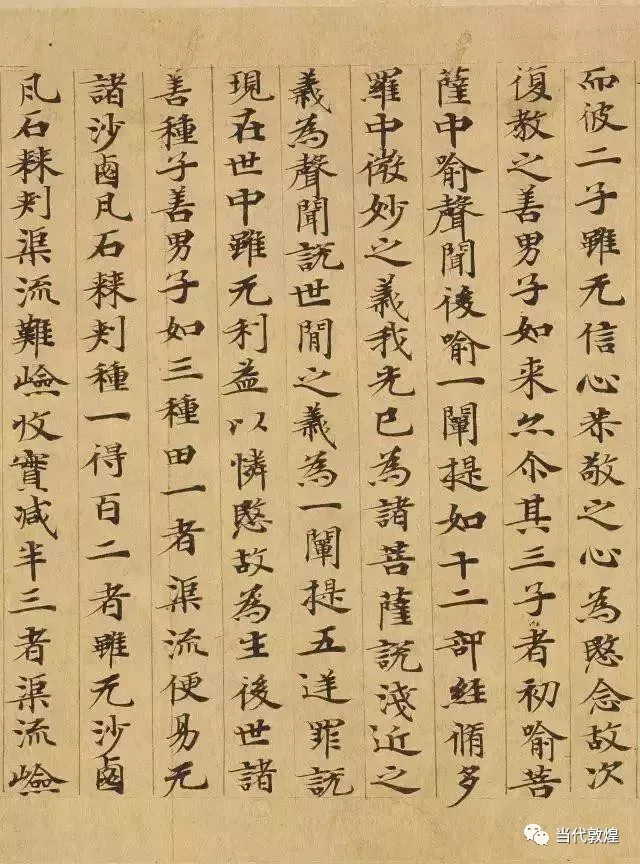 而彼二子雖无信心恭敬之心為愍念故次
復教之善男子如来亦尒其三子者初喻菩
薩中喻聲聞後喻一闡提如十二部經脩多
羅中微妙之義我先已為諸菩薩説淺近之
義為聲聞説世間之義為一闡提五逆罪説
現在世中雖无利益以憐愍故為生後世諸
善種子善男子如三種田一者渠流便易无
諸沙鹵凡石棘刺種一得百二者雖无沙鹵
凡石棘刺渠流難嶮收實减半三者渠流嶮
当代敦煌